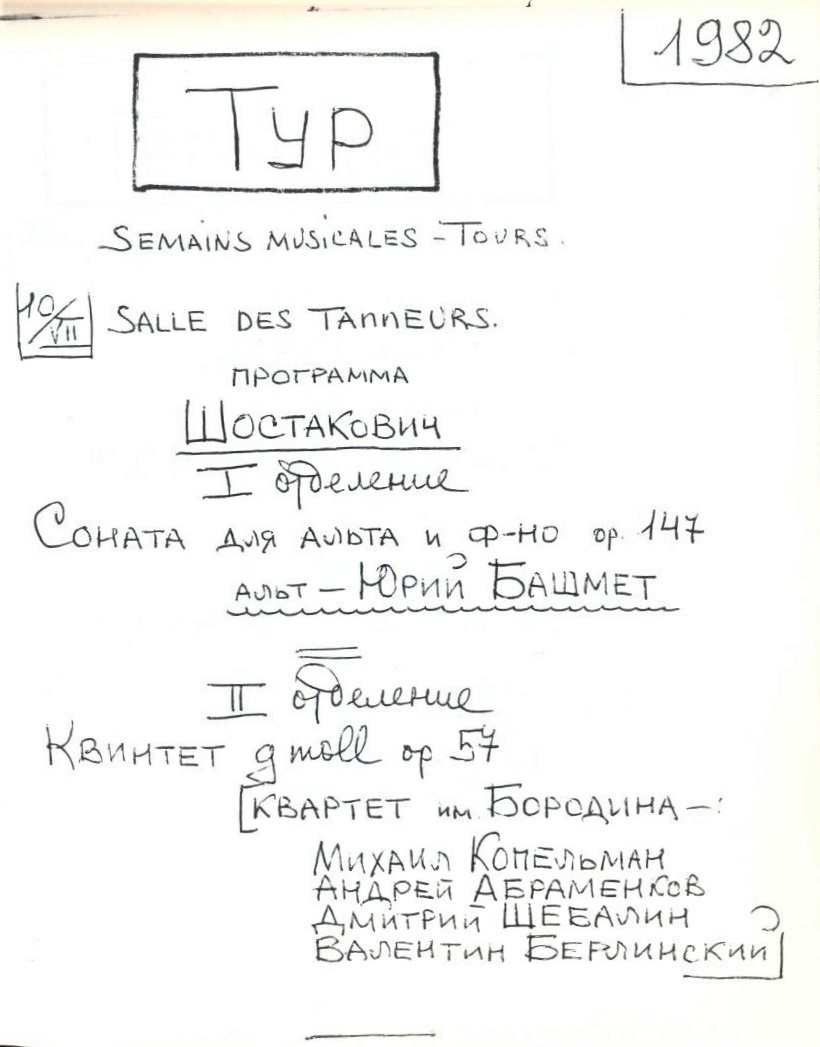 1982
Тур
SEMAINS MUSICALES - TOURS.
10/VII SALLE DES TANNEURS.
ПРОГРАММА
ШОСТАКОВИЧ
I отделение
СОНАТА ДЛЯ АЛЬТА И Ф-НО op. 147
АЛЬТ – ЮРИЙ БАШМЕТ
II отделение
КВИНТЕТ g moll op 57
[КВАРТЕТ им. БОРОДИНА –:
МИХАИЛ КОПЕЛЬМАН
АНДРЕЙ АБРАМЕНКОВ
ДМИТРИЙ ШЕБАЛИН
ВАЛЕНТИН БЕРЛИНСКИЙ]